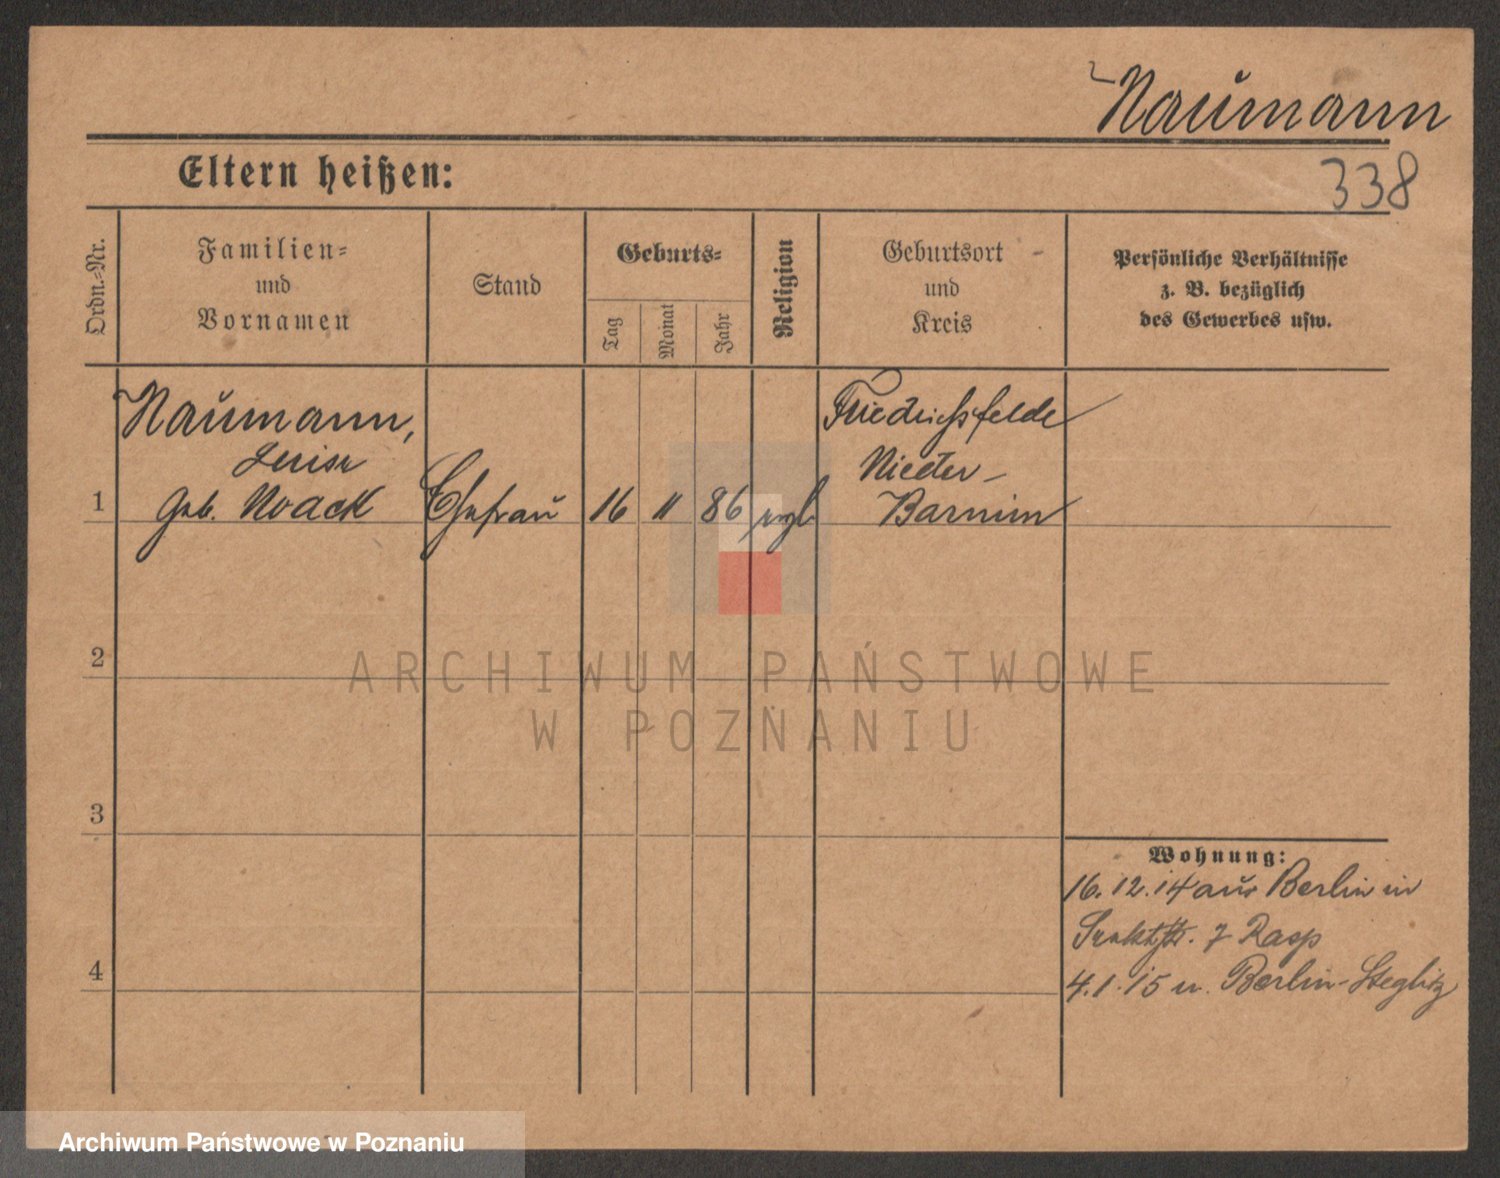 Naumann
338
Eltern heißen:
Ordn.-Nr.
Familien-
und
Vornamen
Stand
Geburts-
Tag
Monat
Jahr
Religion
Geburtsort
und
Kreis
Persönliche Verhältnisse
z. B. bezüglich
des Gewerbes usw.
Naumann,
Luise
1 geb. Noack Ehefrau 16 11 86 evgl.
Friedrichsfelde
Nieder-
Barnim
2
3
4
Wohnung:
16.12.14 aus Berlin in
7 Rasp
4.1.15 n. Berlin-Steglitz
ARCHIWUM PAŃSTWOWE
W POZNANIU
Archiwum Państwowe w Poznaniu